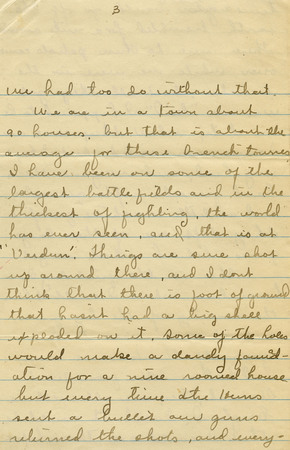 3
we had too do without that.
We are in a town about
90 houses, but that is about the
average for these French townes
I have been on some of the
largest battlefields and in the
thickest of fighting, the world
has ever seen, and that is at
"Verdun". Things are sure shot
up around there, and I dont
think that there is foot of ground
that hasn't had a big shell
exploded on it, some of the holes
would make a dandy found-
ation for a nine roomed house
but every time the Huns
sent a bullet our guns
returned the shots, and every-